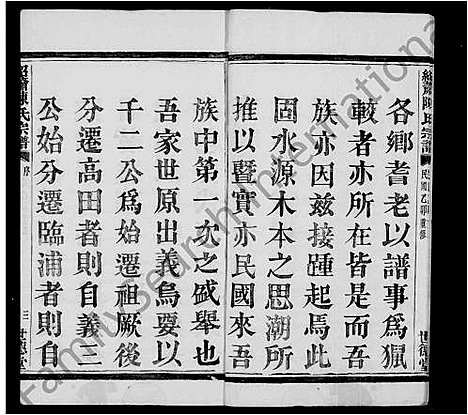 紹蕭陳氏宗譜
民國乙卯重修
世德堂
各鄉耆老以譜事為猟
較者亦所在皆是某某
族亦因兹接踵起焉此
固水源木本之思潮所
推以暨實亦民國來吾
族中第一次之盛舉也
吾家世原出義烏要以
千二公為始遷祖厥後
分遷高田者則自義三
公始分遷臨浦者則自
紹蕭陳氏宗譜
序
三
世德堂
FamilySearch International